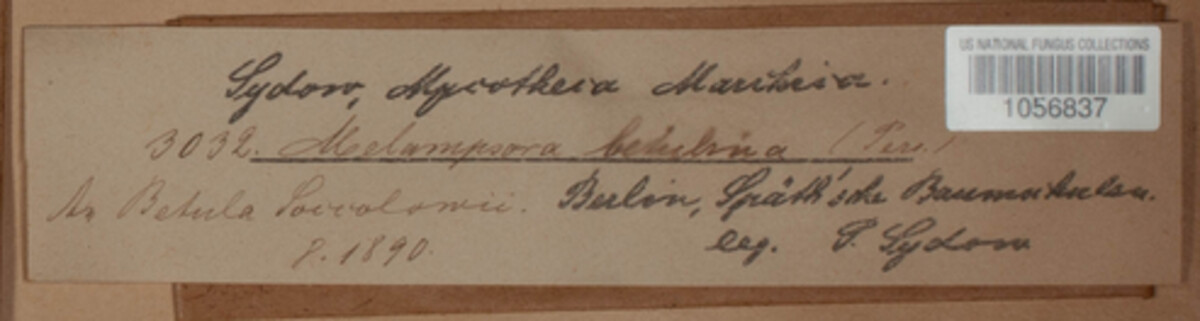 Sydow, Mycotheca Marchica.
US NATIONAL FUNGUS COLLECTIONS
1056837
3032. Melampsora betulina (Pers.)
An Betula Soccolowii. Berlin, Späth'sche Baumschulen.
8. 1890. leg. P. Sydow